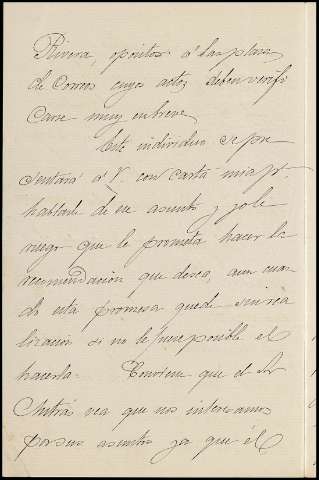 Rivera, opositor á las plazas
de Correos cuyos actos deben verifi
carse muy en breve.
Este individuo se pre
sentará á V. con carta mia pa.
hablarle de ese asunto y yo le
ruego que le prometa hacer la
recomendación que desea, aun cuan
do esta promesa quede sin rea
lización si no le fuese posible el
hacerla. Conviene que el Sr
vea que nos interesamos
por sus asuntos ya que él